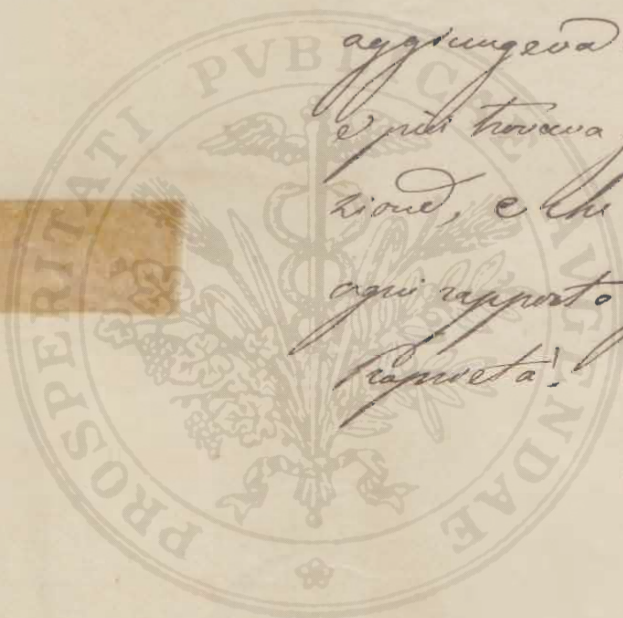 PROSPERITATI PVBLICAE AVGENDAE
aggiungeva
e più trovava
zione, e che
ogni rapporto
Proprietà!